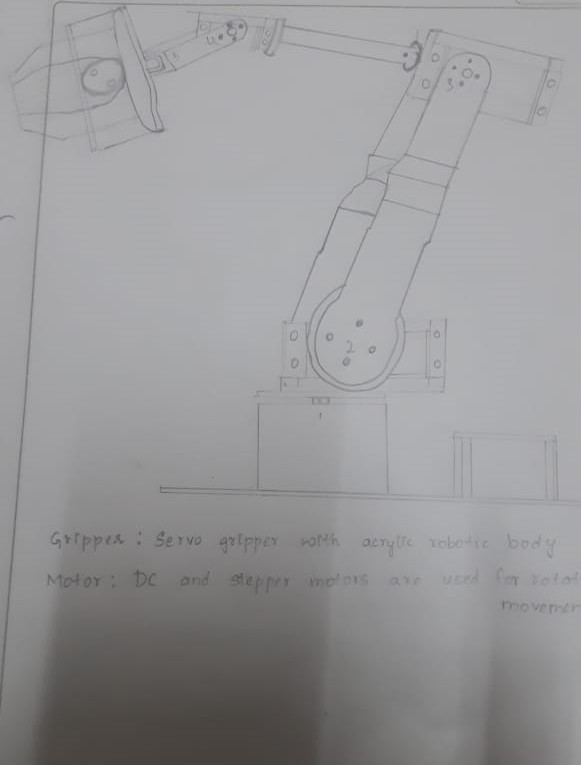 4
3
2
1
Gripper : Servo gripper with acrylic robotic body
Motor : DC and stepper motors are used for